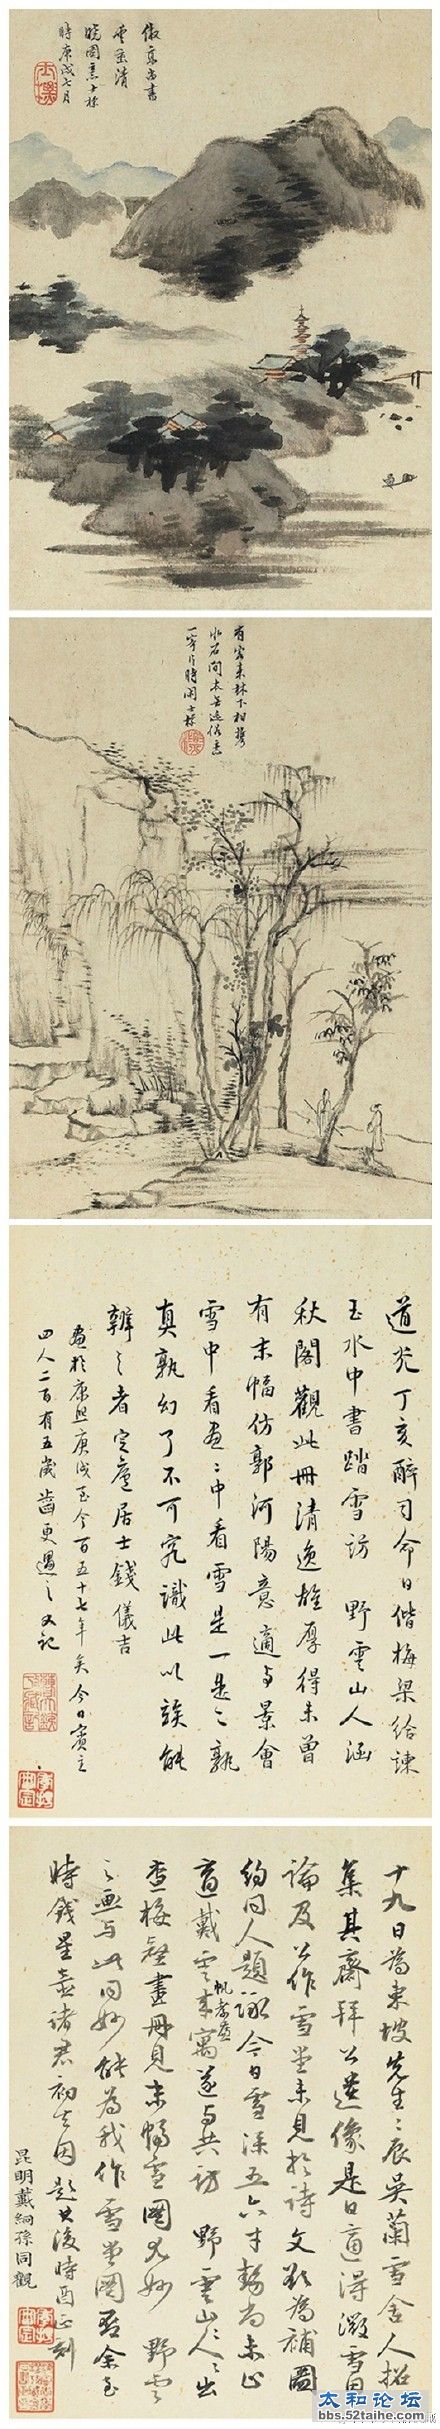 倣高尚書
雲氣清
曉圖 士標
時庚戌七月
有客来林下相携
水石間太無逸俗意
時閏 士標
道光丁亥醉司命日偕梅梁給諫
玉水中書踏雪訪 野雲山人涵
秋閣觀此冊清逸雄厚得未曾
有末幅仿郭河陽意適与景會
雪中看畫畫中看雪是一是二孰
真孰幻了不可究識此以竢能
辨之者定廬居士錢儀吉
畫於康熙庚戌至今百五十七年矣今日賓主
四人二百有五歲齒更過之又記
十九日為東坡先生生辰吳蘭雪舍人招
集其齋拜公遺像是日適得微雪因
論及公作雪堂未見於詩文欲為補圖
約同人題詠今日雪深五六寸勢尚未止
適戴雲帆孝廉來寓遂与共訪 野雲山人人出
查梅壑畫冊見末幅雪圖尤妙 野雲
之画与此同妙能為我作雪堂圖否余至
時錢星壺諸君初去因題其後時酉正刻
昆明戴絅孫同觀
太和论坛
bbs.52taihe.com